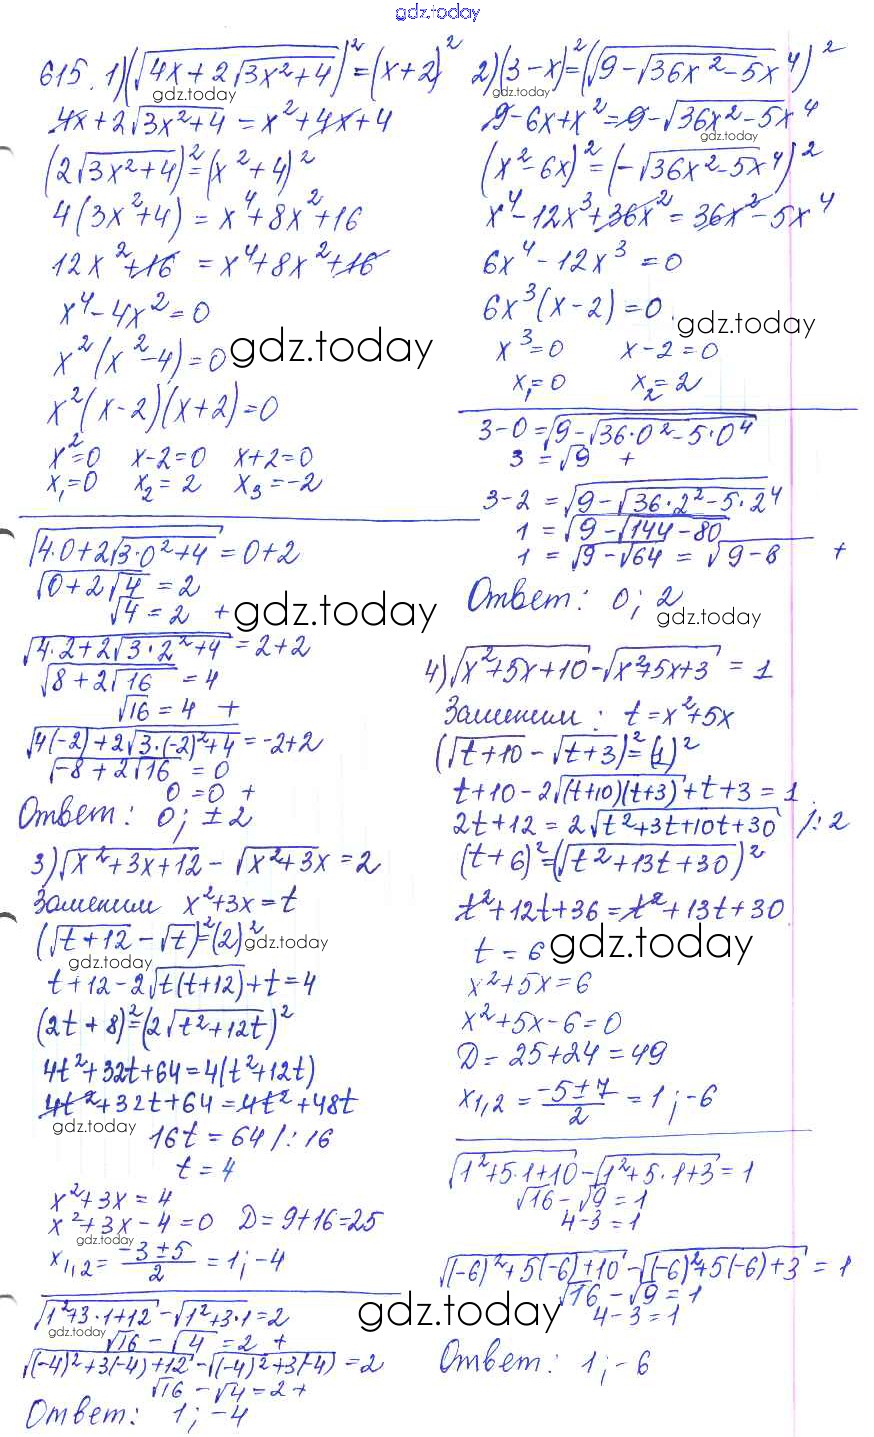 gdz.today
615. 1) (√(4x+2√(3x²+4)))² = (x+2)²
gdz.today
4x+2√(3x²+4) = x²+4x+4
(2√(3x²+4))² = (x²+4)²
4(3x²+4) = x⁴+8x²+16
12x²+16 = x⁴+8x²+16
x⁴-4x²=0
x²(x²-4)=0
gdz.today
x²(x-2)(x+2)=0
x²=0 x-2=0 x+2=0
x₁=0 x₂=2 x₃=-2
√(4·0+2√(3·0²+4)) = 0+2
√(0+2√4) = 2
√4 = 2 +
gdz.today
√(4·2+2√(3·2²+4)) = 2+2
√(8+2√16) = 4
√16 = 4 +
√(4(-2)+2√(3·(-2)²+4)) = -2+2
√(-8+2√16) = 0
0=0 +
Ответ: 0; ±2
3) √(x²+3x+12) - √(x²+3x) = 2
Заменим x²+3x=t
(√(t+12) - √t)² = (2)²
gdz.today
gdz.today
t+12-2√(t(t+12))+t=4
(2t+8)² = (2√(t²+12t))²
4t²+32t+64=4(t²+12t)
4t²+32t+64=4t²+48t
gdz.today
16t = 64 /:16
t = 4
x²+3x = 4
x²+3x-4=0 D=9+16=25
gdz.today
x₁,₂ = (-3±5)/2 = 1; -4
√(1²+3·1+12) - √(1²+3·1) = 2
gdz.today
√16 - √4 = 2 +
√((-4)²+3(-4)+12) - √((-4)²+3(-4)) = 2
√16 - √4 = 2 +
Ответ: 1; -4
2) (3-x)² = (√(9-√(36x²-5x⁴)))²
gdz.today
9-6x+x² = 9-√(36x²-5x⁴)
gdz.today
(x²-6x)² = (-√(36x²-5x⁴))²
x⁴-12x³+36x² = 36x²-5x⁴
6x⁴-12x³ = 0
6x³(x-2) = 0
gdz.today
x³=0 x-2=0
x₁=0 x₂=2
3-0 = √(9-√(36·0²-5·0⁴))
3 = √9 +
3-2 = √(9-√(36·2²-5·2⁴))
1 = √(9-√(144-80))
1 = √(9-√64) = √(9-8) +
Ответ: 0; 2
gdz.today
4) √(x²+5x+10) - √(x²+5x+3) = 1
Заменим: t=x²+5x
(√(t+10) - √(t+3))² = (1)²
t+10-2√((t+10)(t+3))+t+3=1
2t+12 = 2√(t²+3t+10t+30) /:2
(t+6)² = (√(t²+13t+30))²
t²+12t+36 = t²+13t+30
t = 6
gdz.today
x²+5x=6
x²+5x-6=0
D = 25+24=49
x₁,₂ = (-5±7)/2 = 1; -6
√(1²+5·1+10) - √(1²+5·1+3) = 1
√16 - √9 = 1
4-3=1
√((-6)²+5(-6)+10) - √((-6)²+5(-6)+3) = 1
√16 - √9 = 1
gdz.today
4-3=1
Ответ: 1; -6